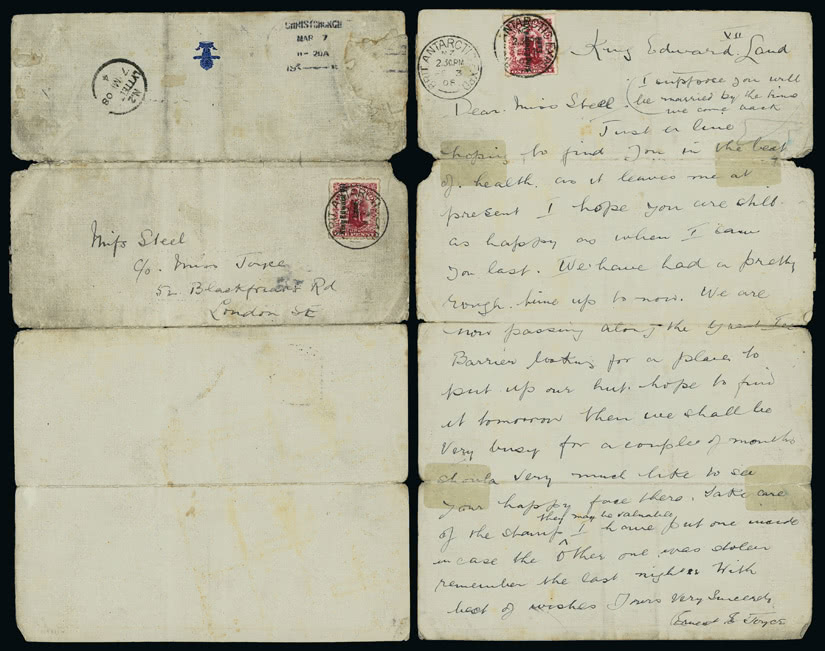 CHRISTCHURCH
MAR 7
LYTTELTON N.Z
7 MR 08
4
BRIT. ANTARCTIC EXPD.
Miss Steel
c/o Miss Joyce
52 Blackfriars Rd
London SE
BRIT. ANTARCTIC EXPD.
2.30PM
08
King Edward VII Land
Dear Miss Steel (I suppose you will
be married by the time
we come back
Just a line
hoping to find you in the best
of health as it leaves me at
present I hope you are still
as happy as when I saw
you last. We have had a pretty
rough time up to now. We are
now passing along the Great Ice
Barrier looking for a place to
put up our hut. hope to find
it tomorrow then we shall be
very busy for a couple of months
should very much like to see
your happy face there. Take care
of the stamps they may be valuable I have put one inside
in case the other one was stolen
remember the last night. With
best of wishes Yours Very Sincerely
Ernest E Joyce